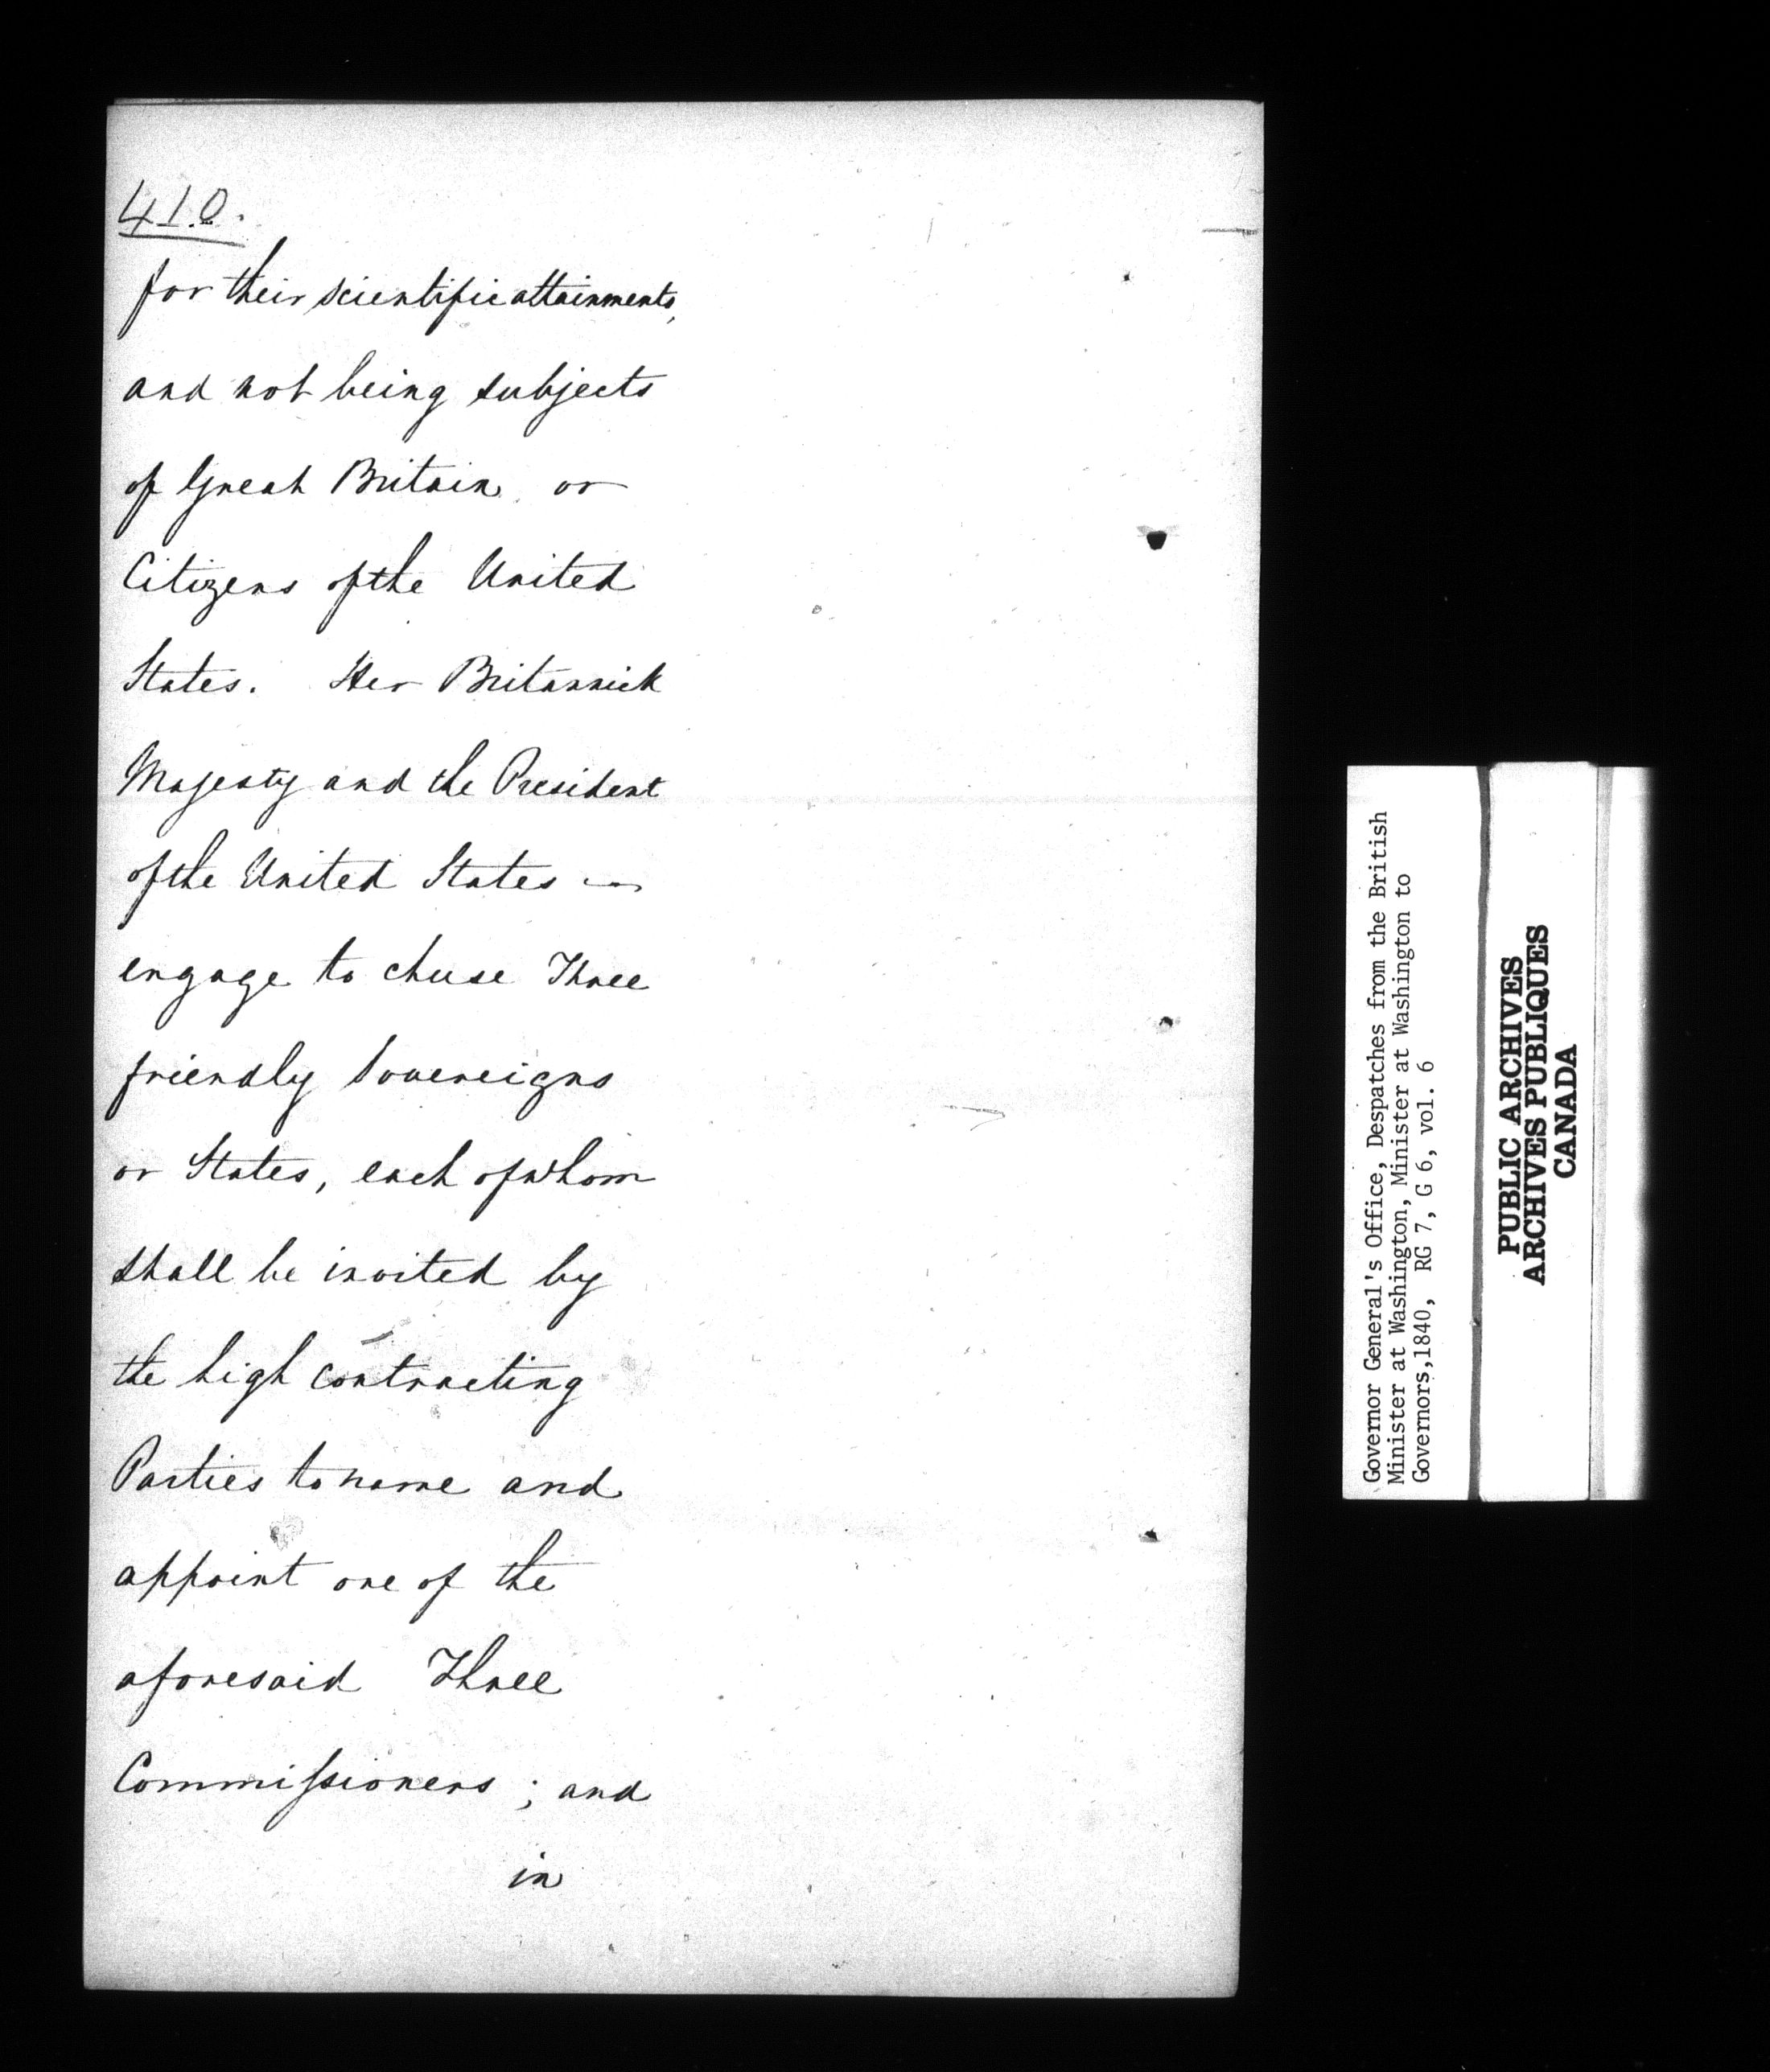 410.
for their scientific attainments,
and not being subjects
of Great Britain or
Citizens of the United
States. Her Britannick
Majesty and the President
of the United States —
engage to chuse Three
friendly Sovereigns
or States, each of whom
shall be invited by
the high contracting
Parties to name and
appoint one of the
aforesaid Three
Commissioners; and
in
Governor General's Office, Despatches from the British
Minister at Washington, Minister at Washington to
Governors,1840, RG 7, G 6, vol. 6
PUBLIC ARCHIVES
ARCHIVES PUBLIQUES
CANADA